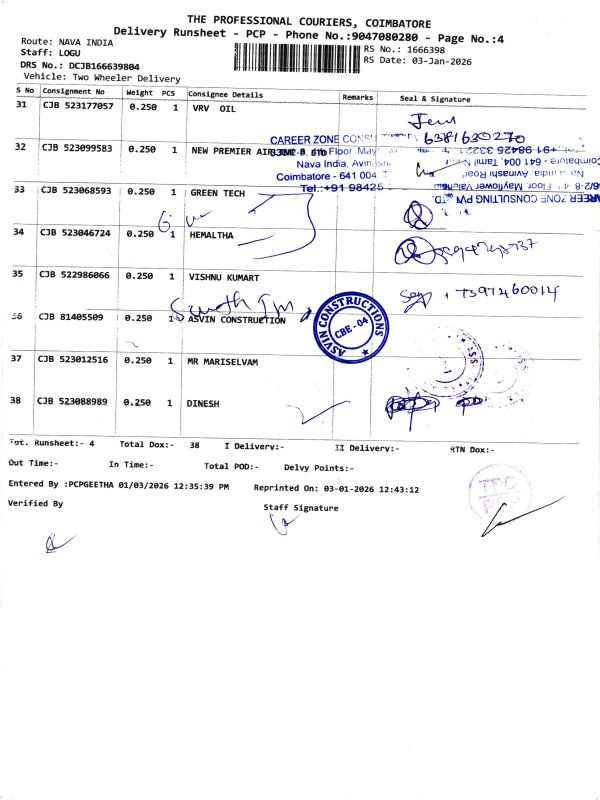 THE PROFESSIONAL COURIERS, COIMBATORE
Delivery Runsheet - PCP - Phone No.:9047080280 - Page No.:4
Route: NAVA INDIA
RS No.: 1666398
Staff: LOGU
RS Date: 03-Jan-2026
DRS No.: DCJB166639804
Vehicle: Two Wheeler Delivery
S No Consignment No Weight PCS Consignee Details Remarks Seal & Signature
31 CJB 523177057 0.250 1 VRV OIL
6381630270
32 CJB 523099583 0.250 1 NEW PREMIER
CAREER ZONE
Floor, May
Nava India, Avinashi
Coimbatore - 641 004
Tel.:+91 98425
CAREER ZONE CONSULTING PVT LTD.
Floor, Mayflower Valencia
Nava India, Avinashi Road
Coimbatore - 641 004, Tamil
+91 98425 23321
33 CJB 523068593 0.250 1 GREEN TECH
34 CJB 523046724 0.250 1 HEMALTHA
35 CJB 522986066 0.250 1 VISHNU KUMART
7397460014
36 CJB 81405509 0.250 1 ASVIN CONSTRUCTION
ASVIN CONSTRUCTIONS
CBE - 04
37 CJB 523012516 0.250 1 MR MARISELVAM
38 CJB 523088989 0.250 1 DINESH
Tot. Runsheet:- 4 Total Dox:- 38 I Delivery:- II Delivery:- RTN Dox:-
Out Time:- In Time:- Total POD:- Delvy Points:-
Entered By :PCPGEETHA 01/03/2026 12:35:39 PM Reprinted On: 03-01-2026 12:43:12
Verified By
Staff Signature